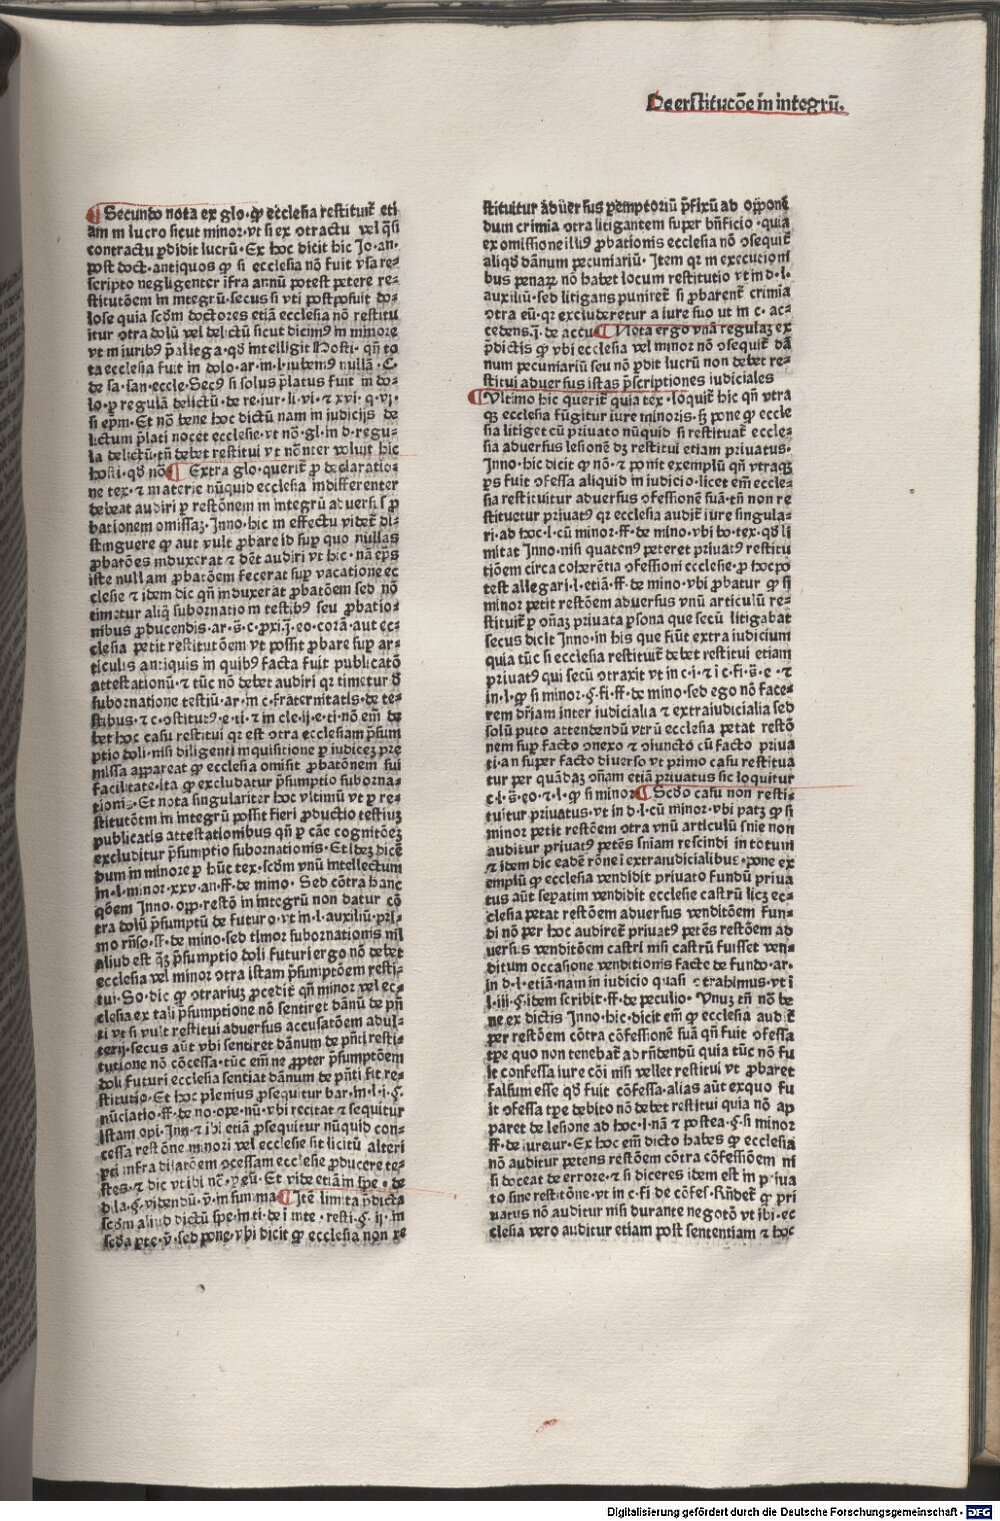 De restitucōe in integrū.
¶ Secundo nota ex glo. ꝙ ecclesia restituit᷑ eti
am in lucro sicut minor. vt si ex ↄtractu vel q̄si
contractu ꝑdidit lucrū. Ex hoc dicit hic Jo. an.
post doct. antiquos ꝙ si ecclesia nō fuit vsa re⸗
scripto negligenter īfra annū potest petere re⸗
stitutōem in integrū. secus si vti postposuit do⸗
lose quia scd̄m doctores etiā ecclesia nō restitu
itur ↄtra dolū vel delictū sicut dicimꝰ in minore
vt in iuribꝰ p̄allega. qd̄ intelligit Hosti. qn̄ to
ta ecclesia fuit in dolo. ar. in. l. iubemꝰ nullā. C.
de sa. san. eccle. Secꝰ si solus p̄latus fuit in do⸗
lo. ꝑ regulā delictū. de re. iur. li. vi. ⁊ xvi. q. vj.
si ep̄m. Et nō bene hoc dictū nam in iudicijs de
lictum p̄lati nocet ecclesie. vt nō. gl. in d. regu⸗
la delictū. tn̄ debet restitui vt nō nter voluit hic
hosti. qd̄ nō ¶ Extra glo. querit᷑ ꝓ declaratio⸗
ne tex. ⁊ materie nūquid ecclesia indifferenter
debeat audiri ꝑ restōnem in integrū aduersus ꝓ
bationem omissaꝫ. Inno. hic in effectu videt᷑ di⸗
stinguere ꝙ aut vult ꝓbare id suꝑ quo nullas
ꝓbatōes induxerat ⁊ dēt audiri vt hic. nā ep̄s
iste nullam ꝓbatōem fecerat suꝑ vacatione ec
clesie ⁊ idem dic qn̄ induxerat ꝓbatōem sed nō
timetur aliq̄ subornatio in testibꝰ seu ꝓbatio⸗
nibus ꝓducendis. ar. s̄. c. ꝓxi. j̄. eo. corā. aut ec⸗
clesia petit restitutōem vt possit ꝓbare suꝑ ar⸗
ticulis antiquis in quibꝰ facta fuit publicatō
attestationū. ⁊ tūc nō debet audiri qr timetur d̄
subornatione testiū. ar. in c. fraternitatis. de te⸗
stibus. ⁊ c. ↄstitutꝰ. e. ti. ⁊ in cle. ij. e. ti. nō em̄ de
bet hoc casu restitui qr est ↄtra ecclesiam p̄sum
ptio doli. nisi diligenti inquisitione ꝑ iudiceꝫ pre
missa appareat ꝙ ecclesia omisit ꝓbatōnem sui
facilitate. ita ꝙ excludatur p̄sumptio suborna⸗
tionis. Et nota singulariter hoc vltimū vt ꝑ re⸗
stitutōem in integrū possit fieri ꝓductio testiuꝫ
publicatis attestationibus qn̄ ꝑ cāe cognitōeꝫ
excluditur p̄sumptio subornationis. Et ideꝫ dicē
dum in minore ꝑ hūc tex. scd̄m vnū intellectum
in. l. minor. xxv. an. ff. de mino. Sed cōtra hanc
q̄ōem Inno. opp. restō in integrū non datur cō
tra dolū p̄sumptū de futuro. vt in. l. auxiliū. pri⸗
mo rn̄so. ff. de mino. sed timor subornationis nil
aliud est q̄ꝫ p̄sumptio doli futuri ergo nō debet
ecclesia vel minor ↄtra istam p̄sumptōem resti⸗
tui. So. dic ꝙ ↄtrariuꝫ ꝓcedit qn̄ minor vel ec⸗
clesia ex tali p̄sumptione nō sentiret dānū de p̄n
ti vt si vult restitui aduersus accusatōem adul⸗
terij. secus aūt vbi sentiret dānum de p̄nti resti⸗
tutione nō cōcessa. tūc em̄ ne ꝓpter p̄sumptōem
doli futuri ecclesia sentiat dānum de p̄nti fit re⸗
stitutio. Et hoc plenius ꝓsequitur bar. in. l. i. §.
nūciatio. ff. de no. ope. nū. vbi recitat ⁊ sequitur
istam opi. Inn. ⁊ ibi etiā ꝓsequitur nūquid con⸗
cessa restōne minori vel ecclesie sit licitū alteri
ꝑti infra dilatōem ↄcessam ecclesie ꝓducere te⸗
stes. ⁊ dic vt ibi nc̄. ꝑ eū. Et vide etiā in spe. de
dila. §. videndū. v̄. in summa ¶ Itē limita p̄dicta
scd̄m aliud dictū spe. in ti. de i inte. resti. §. ij. in
scd̄a ꝑte. v̄. sed pone. vbi dicit ꝙ ecclesia non re
stituitur aduersus ꝑemptoriū p̄fixū ad opponē
dum crimia ↄtra litigantem super bn̄ficio. quia
ex omissione illiꝰ ꝓbationis ecclesia nō ↄsequit᷑
aliqd̄ dānum pecuniariū. Item qr in executioni
bus penaꝝ nō habet locum restitutio vt in d. l.
auxiliū. sed litigans puniret᷑ si ꝓbarent᷑ crimia
ↄtra eū. qr excluderetur a iure suo ut in c. ac⸗
cedens. j̄. de accu ¶ Nota ergo vnā regulaꝫ ex
p̄dictis ꝙ vbi ecclesia vel minor nō ↄsequit᷑ dā
num pecuniariū seu nō ꝑdit lucrū non debet re⸗
stitui aduersus istas p̄scriptiones iudiciales
¶ Vltimo hic querit᷑ quia tex. loquit᷑ hic qn̄ vtra
qꝫ ecclesia fūgitur iure minoris. sꝫ pone ꝙ eccle
sia litiget cū priuato nūquid si restituat᷑ eccle⸗
sia aduersus lesionē dꝫ restitui etiam priuatus.
Inno. hic dicit ꝙ nō. ⁊ ponit exemplū qn̄ vtraqꝫ
ꝑs fuit ↄfessa aliquid in iudicio. licet em̄ eccle⸗
sia restituitur aduersus ↄfessionē suā. tn̄ non re
stituetur priuatꝰ qr ecclesia audit᷑ iure singula⸗
ri. ad hoc. l. cū minor. ff. de mino. vbi bo. tex. qd̄ li
mitat Inno. nisi quatenꝰ peteret priuatꝰ restitu
tiōem circa coherētia ↄfessioni ecclesie. ꝓ hoc po
test allegari. l. etiā. ff. de mino. vbi ꝓbatur ꝙ si
minor petit restōem aduersus vnū articulū re⸗
stituit᷑ ꝑ oīaꝫ priuata ꝑsona que secū litigabat
secus dicit Inno. in his que fiūt extra iudicium
quia tūc si ecclesia restituit᷑ debet restitui etiam
priuatꝰ qui secū ↄtraxit vt in c. i. ⁊ i c. fi. s̄. e. ⁊
in. l. ꝙ si minor. §. fi. ff. de mino. sed ego nō face⸗
rem dr̄iam inter iudicialia ⁊ extraiudicialia sed
solū puto attendendū vtrū ecclesia petat restō
nem suꝑ facto ↄnexo ⁊ ↄiuncto cū facto priua
ti. an super facto diuerso vt primo casu restitua
tur per quādaꝫ ↄn̄am etiā priuatus sic loquitur
c. i. s̄. eo. ⁊. l. ꝙ si minor ¶ Scd̄o casu non resti⸗
tuitur priuatus. vt in d. l. cū minor. vbi patꝫ ꝙ si
minor petit restōem ↄtra vnū articulū sn̄ie non
auditur priuatꝰ petēs sn̄iam rescindi in totum
⁊ idem dic eadē rōne i extraiudicialibus. pone ex
emplū ꝙ ecclesia vendidit priuato fundū priua
tus aūt seꝑatim vendidit ecclesie castrū licꝫ ec⸗
clesia petat restōem aduersus venditōem fun⸗
di nō per hoc audiret᷑ priuatꝰ petēs restōem ad
uersus venditōem castri nisi castrū fuisset ven⸗
ditum occasione venditionis facte de fundo. ar.
in d. l. etiā. nam in iudicio quasi ↄtrahimus. vt i
l. iii. §. idem scribit. ff. de peculio. Vnuꝫ tn̄ nō be
ne ex dictis Inno. hic. dicit em̄ ꝙ ecclesia audit᷑
per restōem cōtra cōfessionē suā qn̄ fuit ↄfessa
tp̄e quo non tenebat᷑ ad rn̄dendū quia tūc nō fu
it confessa iure cōi nisi vellet restitui vt ꝓbaret
falsum esse qd̄ fuit cōfessa. alias aūt exquo fu
it ↄfessa tp̄e debito nō debet restitui quia nō ap
paret de lesione ad hoc. l. nā ⁊ postea. §. si minor
ff. de iureiur. Ex hoc em̄ dicto habes ꝙ ecclesia
nō auditur petens restōem cōtra cōfessiōem ni
si doceat de errore. ⁊ si diceres idem est in priua
to sine restitōne. vt in c. fi. de cōfes. Rn̄det᷑ ꝙ pri
uatus nō auditur nisi durante negotō vt ibi. ec
clesia vero auditur etiam post sententiam ⁊ hoc
Digitalisierung gefördert durch die Deutsche Forschungsgemeinschaft - DFG